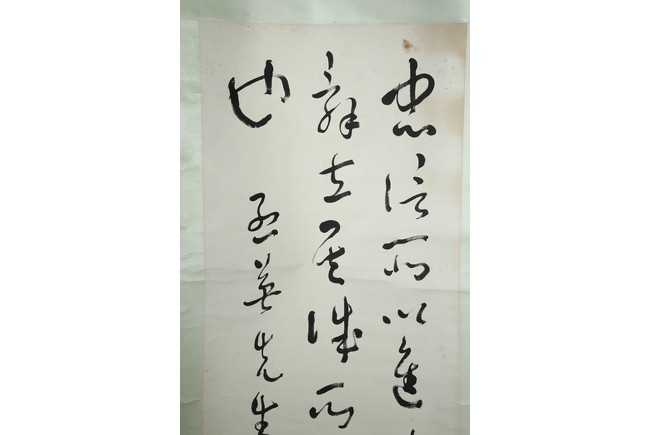 忠信所以進
辭立其誠所
也 英先生